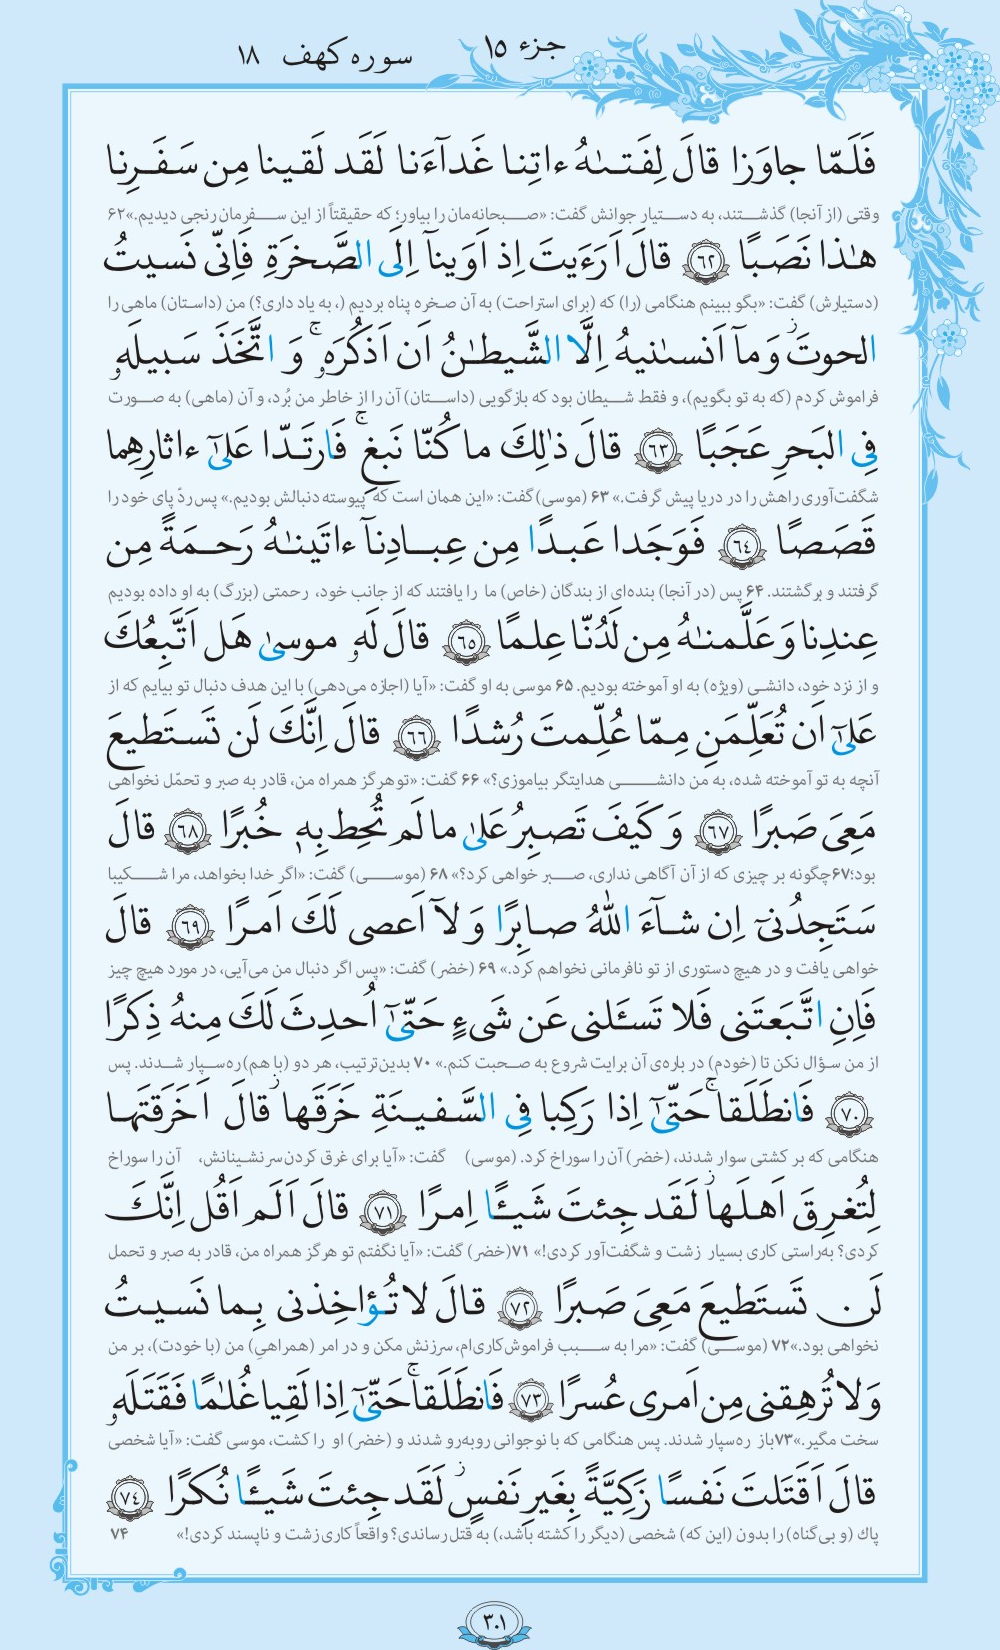 جزء ۱۵
سوره کهف ۱۸
فَلَمّا جاوَزا قالَ لِفَتىٰهُ ءاتِنا غَدآءَنا لَقَد لَقينا مِن سَفَرِنا
وقتی (از آنجا) گذشتند، به دستیارِ جوانش گفت: «صبحانه‌مان را بیاور؛ که حقیقتاً از این سفرمان رنجی دیدیم.»۶۲
هٰذا نَصَبًا ﴿٦٢﴾ قالَ اَرَءَيتَ اِذ اَوَينآ اِلَى الصَّخرَةِ فَاِنّى نَسيتُ
(دستیارش) گفت: «بگو ببینم هنگامی (را) که (برای استراحت) به آن صخره پناه بردیم (، به یاد داری؟) من (داستان) ماهی را
الحوتَ ۫ وَ مآ اَنسىٰنيهُ اِلَّا الشَّيطٰنُ اَن اَذكُرَهٗ ۚ وَ اتَّخَذَ سَبيلَهٗ
فراموش کردم (که به تو بگویم)، و فقط شیطان بود که بازگویی (داستان) آن را از خاطر من بُرد، و آن (ماهی) به صورت
فِى البَحرِ عَجَبًا ﴿٦٣﴾ قالَ ذٰلِكَ ما كُنّا نَبغِ ۚ فَارتَدّا عَلىٰٓ ءاثارِهِما
شگفت‌آوری راهش را در دریا پیش گرفت.» ۶۳ (موسی) گفت: «این همان است که پیوسته دنبالش بودیم.» پس ردّ پای خود را
قَصَصًا ﴿٦٤﴾ فَوَجَدا عَبدًا مِن عِبادِنآ ءاتَينٰهُ رَحمَةً مِن
گرفتند و برگشتند. ۶۴ پس (در آنجا) بنده‌ای از بندگان (خاص) ما را یافتند که از جانب خود، رحمتی (بزرگ) به او داده بودیم
عِندِنا وَ عَلَّمنٰهُ مِن لَدُنّا عِلمًا ﴿٦٥﴾ قالَ لَهٗ موسىٰ هَل اَتَّبِعُكَ
و از نزد خود، دانشی (ویژه) به او آموخته بودیم. ۶۵ موسی به او گفت: «آیا (اجازه می‌دهی) با این هدف دنبال تو بیایم که از
عَلىٰٓ اَن تُعَلِّمَنِ مِمّا عُلِّمتَ رُشدًا ﴿٦٦﴾ قالَ اِنَّكَ لَن تَستَطيعَ
آنچه به تو آموخته شده، به من دانشی هدایتگر بیاموزی؟» ۶۶ گفت: «تو هرگز همراه من، قادر به صبر و تحمّل نخواهی
مَعِىَ صَبرًا ﴿٦٧﴾ وَ كَيفَ تَصبِرُ عَلىٰ ما لَم تُحِط بِهٖ خُبرًا ﴿٦٨﴾ قالَ
بود؛۶۷چگونه بر چیزی که از آن آگاهی نداری، صبر خواهی کرد؟» ۶۸ (موسی) گفت: «اگر خدا بخواهد، مرا شکیبا
سَتَجِدُنىٓ اِن شآءَ اللّٰهُ صابِرًا وَ لآ اَعصى لَكَ اَمرًا ﴿٦٩﴾ قالَ
خواهی یافت و در هیچ دستوری از تو نافرمانی نخواهم کرد.» ۶۹ (خضر) گفت: «پس اگر دنبال من می‌آیی، در مورد هیچ چیز
فَاِنِ اتَّبَعتَنى فَلا تَسـَٔلنى عَن شَىءٍ حَتّىٰٓ اُحدِثَ لَكَ مِنهُ ذِكرًا
از من سؤال نکن تا (خودم) در باره‌ی آن برایت شروع به صحبت کنم.» ۷۰ بدین‌ترتیب، هر دو (با هم) ره‌سپار شدند. پس
﴿٧٠﴾ فَانطَلَقا ۚ حَتّىٰٓ اِذا رَكِبا فِى السَّفينَةِ خَرَقَها ۫ قالَ اَخَرَقتَها
هنگامی که بر کشتی سوار شدند، (خضر) آن را سوراخ کرد. (موسی) گفت: «آیا برای غرق کردن سرنشینانش، آن را سوراخ
لِتُغرِقَ اَهلَها ۫ لَقَد جِئتَ شَيـًٔا اِمرًا ﴿٧١﴾ قالَ اَلَم اَقُل اِنَّكَ
کردی؟ به‌راستی کاری بسیار زشت و شگفت‌آور کردی!» ۷۱(خضر) گفت: «آیا نگفتم تو هرگز همراه من، قادر به صبر و تحمل
لَن تَستَطيعَ مَعِىَ صَبرًا ﴿٧٢﴾ قالَ لا تُؤاخِذنى بِما نَسيتُ
نخواهی بود.»۷۲ (موسی) گفت: «مرا به سبب فراموش‌کاری‌ام، سرزنش مکن و در امر (همراهیِ) من (با خودت)، بر من
وَ لا تُرهِقنى مِن اَمرى عُسرًا ﴿٧٣﴾ فَانطَلَقا ۚ حَتّىٰٓ اِذا لَقِيا غُلٰمًا فَقَتَلَهٗ
سخت مگیر.»۷۳باز ره‌سپار شدند. پس هنگامی که با نوجوانی روبه‌رو شدند و (خضر) او را کشت، موسی گفت: «آیا شخصی
قالَ اَقَتَلتَ نَفسًا زَكِيَّةً بِغَيرِ نَفسٍ ۫ لَقَد جِئتَ شَيـًٔا نُكرًا ﴿٧٤﴾
پاک (و بی‌گناه) را بدون (این که) شخصی (دیگر را کشته باشد،) به قتل رساندی؟ واقعاً کاری زشت و ناپسند کردی!» ۷۴
٣٠١